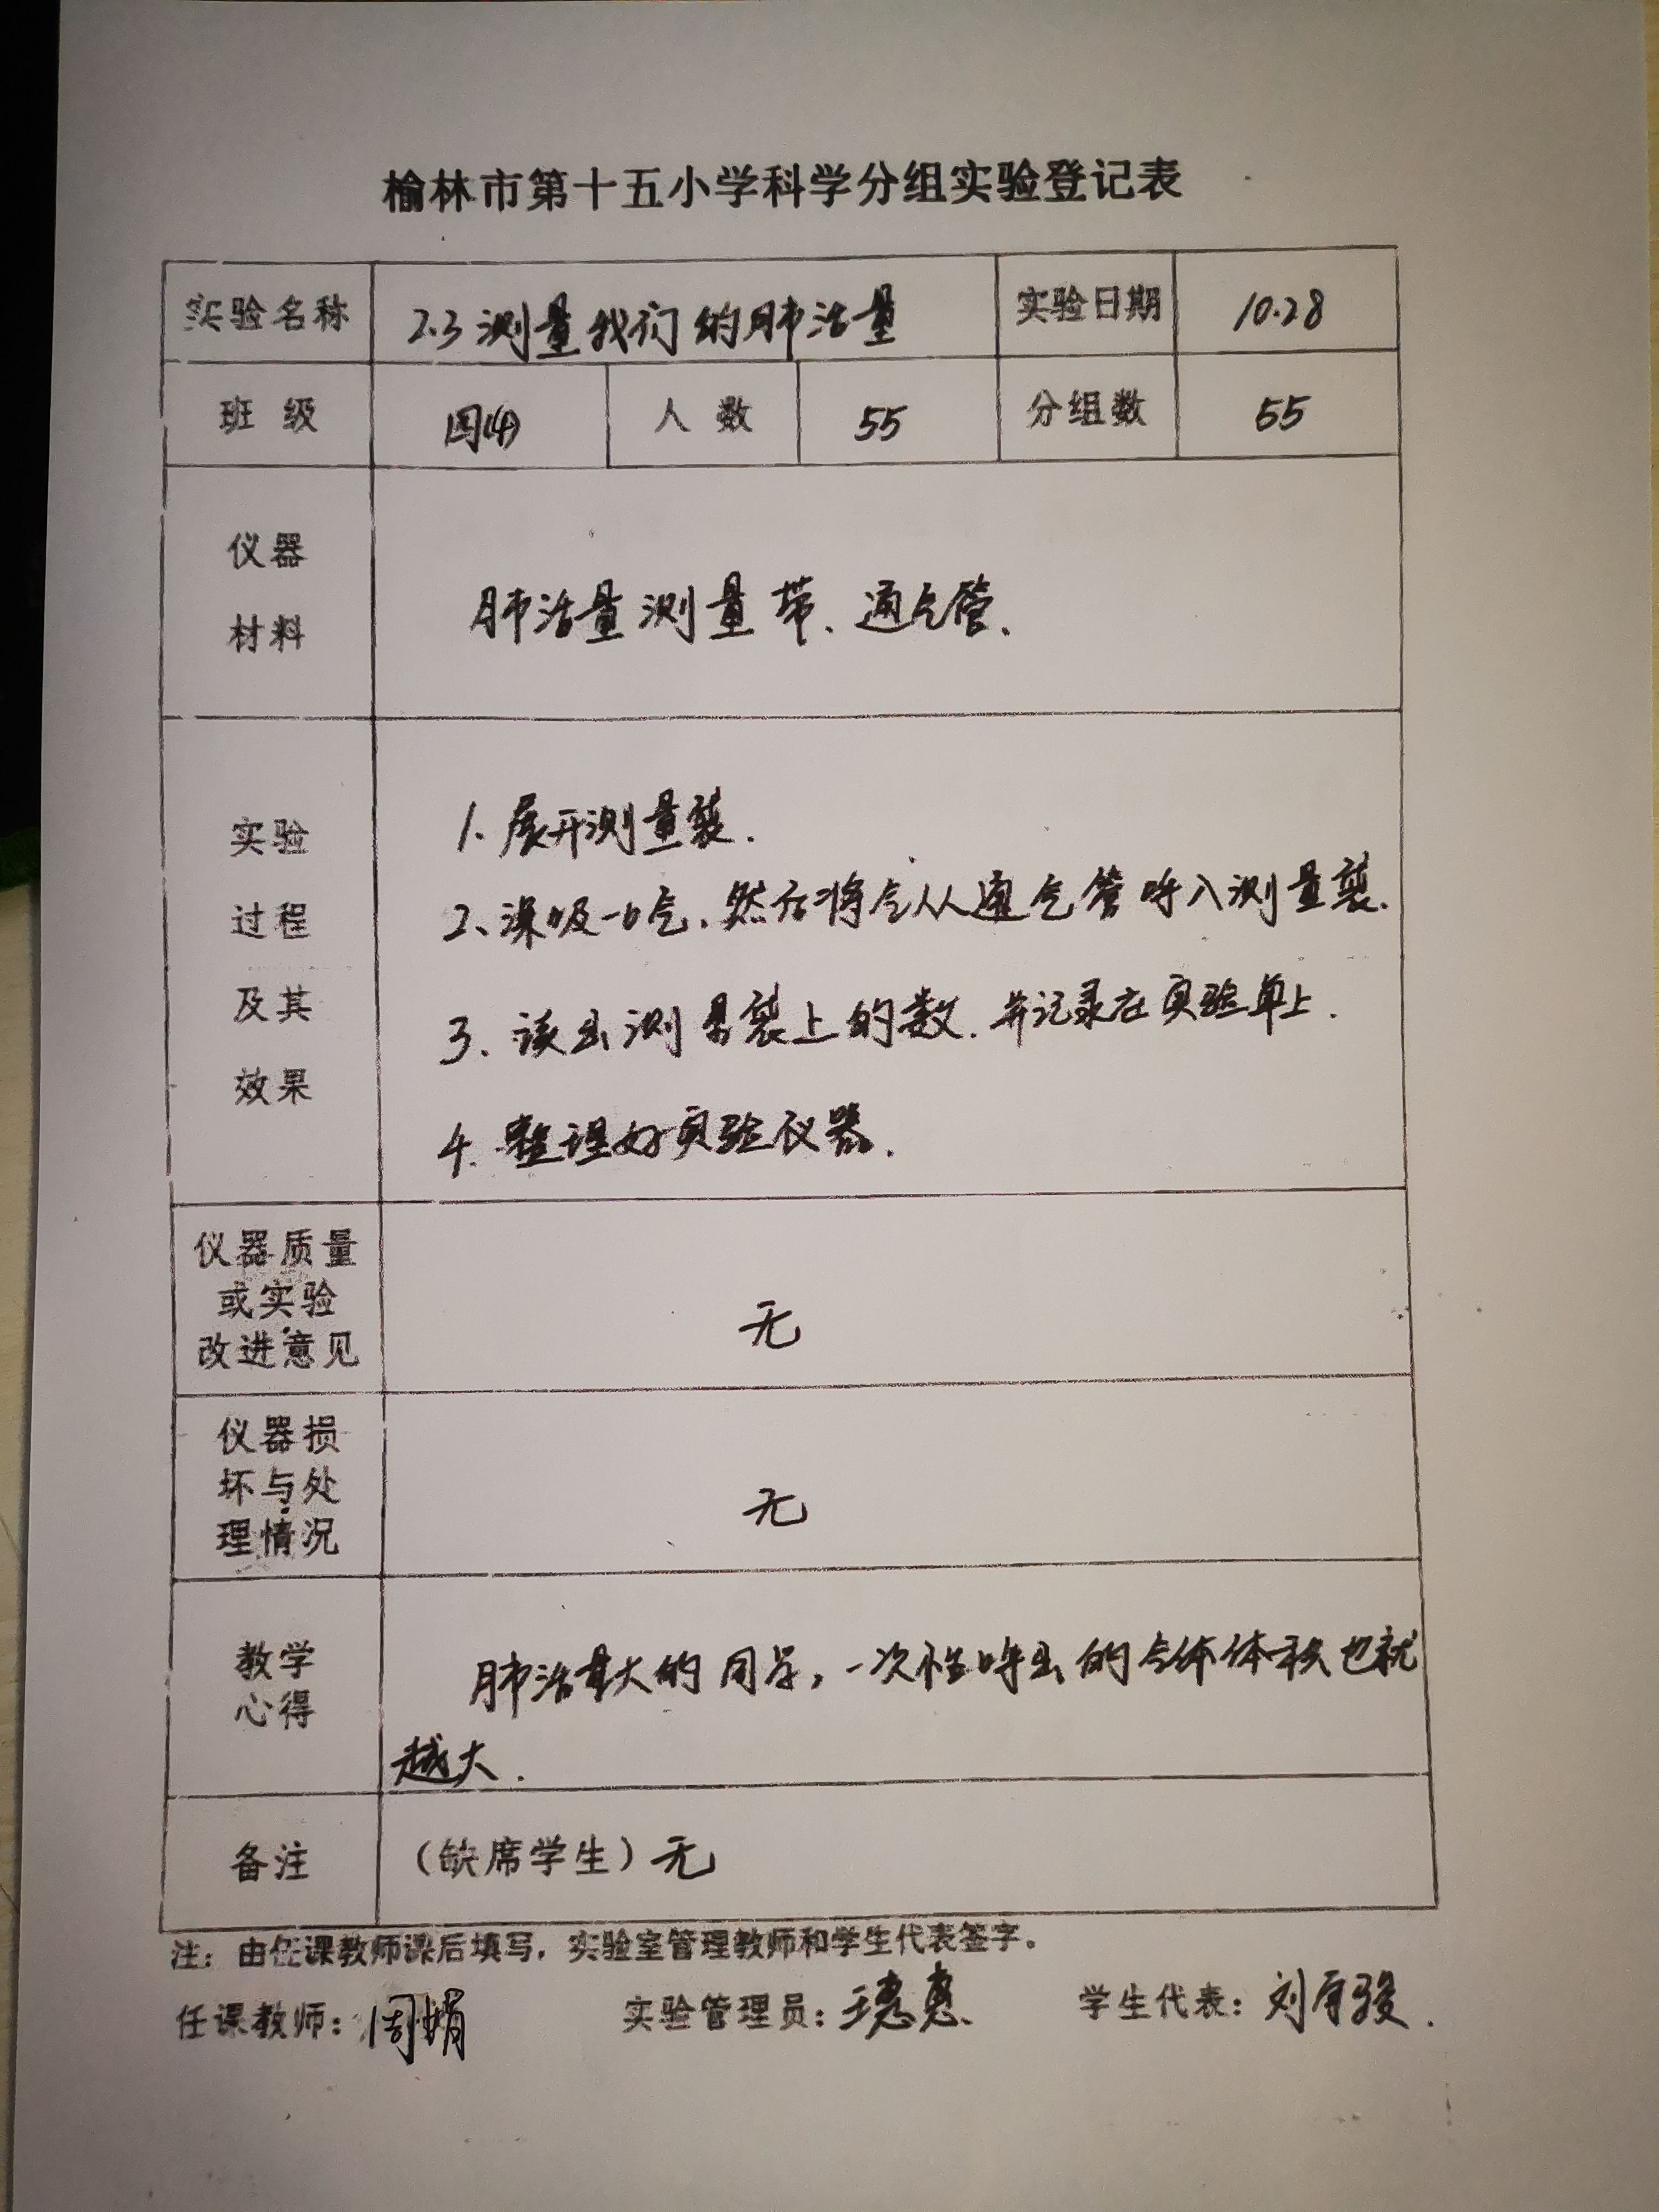 榆林市第十五小学科学分组实验登记表
实验名称 2.3 测量我们的肺活量 实验日期 10.28
班级 四(4) 人数 55 分组数 55
仪器
材料
肺活量测量带、通气管、
实验
过程
及其
效果
1、展开测量袋.
2、深吸一口气,然后将气从通气管呼入测量袋.
3、读出测量袋上的数,并记录在实验单上.
4、整理好实验仪器.
仪器质量
或实验
改进意见
无
仪器损
坏与处
理情况
无
教学
心得
肺活量大的同学,一次性呼出的气体体积也就
越大.
备注 (缺席学生)无
注:由任课教师课后填写,实验室管理教师和学生代表签字。
任课教师:周娟 实验管理员:王惠惠 学生代表:刘